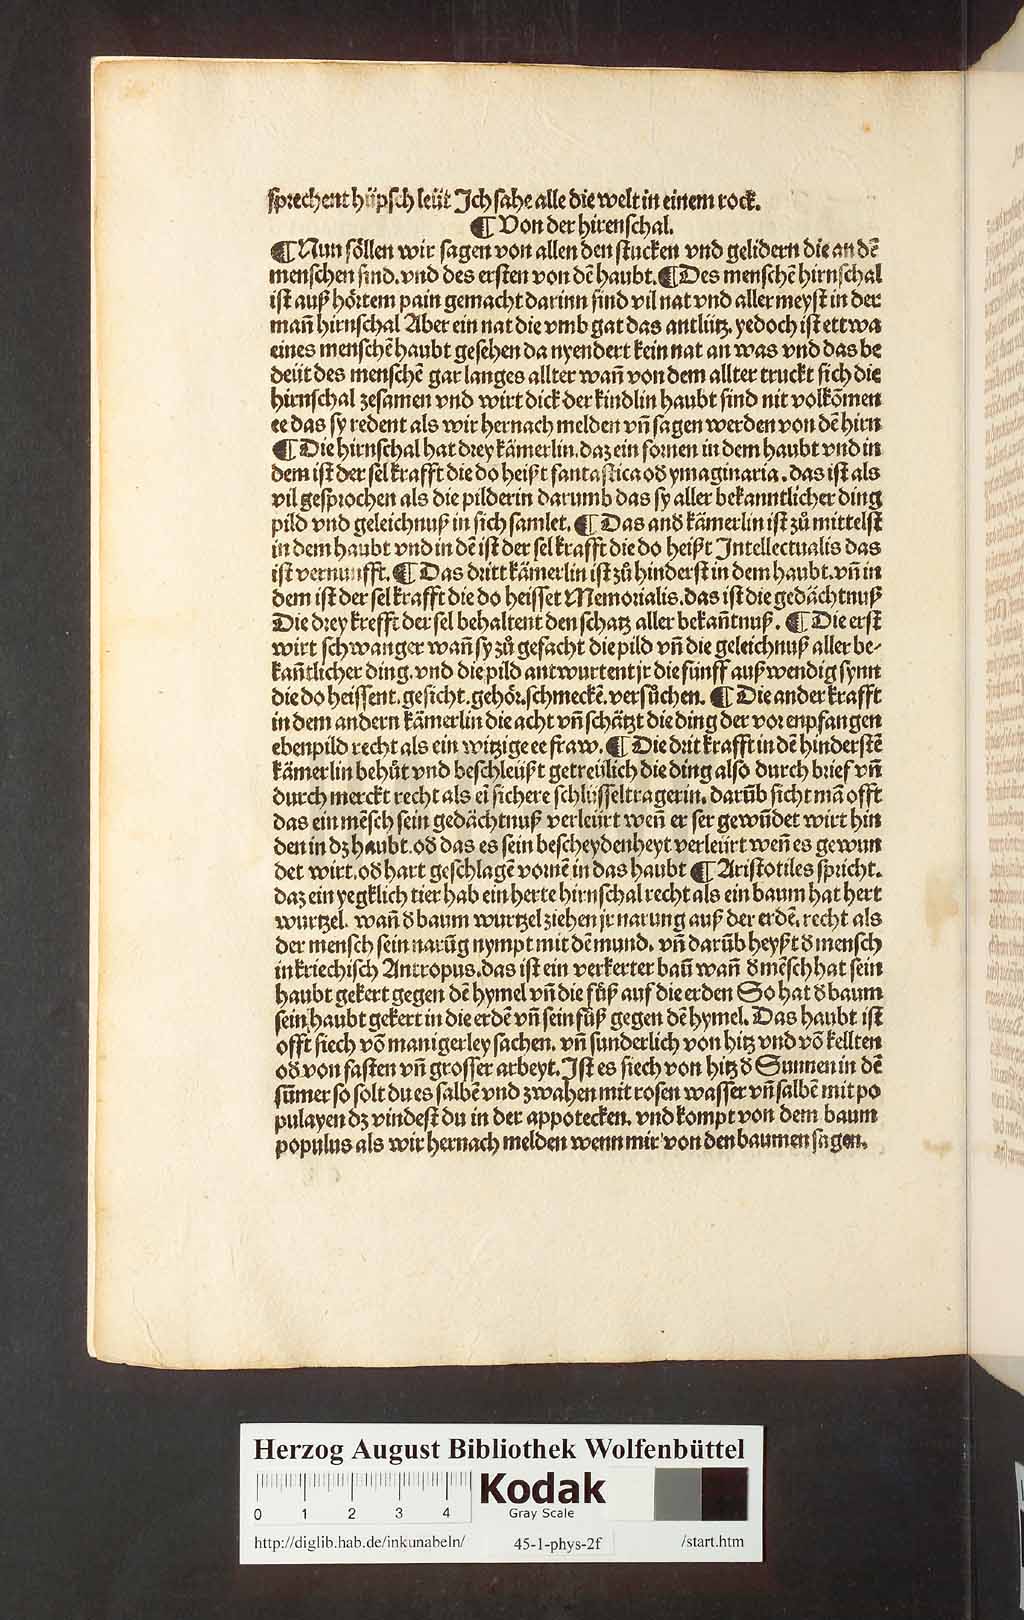 sprechent hüpsch leüt Ich sahe alle die welt in einem rock.
¶ Von der hirenschal.
¶ Nun söllen wir sagen von allen den stucken vnd gelidern die an dē
menschen sind. vnd des ersten von dē haubt. ¶ Des menschē hirnschal
ist auß hörtem pain gemacht darinn sind vil nat vnd aller meyst in der
man̄ hirnschal Aber ein nat die vmb gat das antlütz. yedoch ist ettwa
eines menschē haubt gesehen da nyendert kein nat an was vnd das be
deüt des menschē gar langes allter wan̄ von dem allter truckt sich die
hirnschal zesamen vnd wirt dick der kindlin haubt sind nit volkōmen
ee das sy redent als wir hernach melden vn̄ sagen werden von dē hirn
¶ Die hirnschal hat drey kämerlin. daz ein fornen in dem haubt vnd in
dem ist der sel krafft die do heißt fantastica od ymaginaria. das ist als
vil gesprochen als die pilderin darumb das sy aller bekanntlicher ding
pild vnd geleichnuß in sich samlet. ¶ Das and kämerlin ist zů mittelst
in dem haubt vnd in dē ist der sel krafft die do heißt Intellectualis das
ist vernunfft. ¶ Das dritt kämerlin ist zů hinderst in dem haubt. vn̄ in
dem ist der sel krafft die do heisset Memorialis. das ist die gedächtnuß
Die drey krefft der sel behaltent den schatz aller bekan̄tnuß. ¶ Die erst
wirt schwanger wan̄ sy zů gefacht die pild vn̄ die geleichnuß aller be-
kan̄tlicher ding. vnd die pild antwurtent jr die fünff auß wendig synn
die do heissent. gesicht. gehör. schmeckē. versůchen. ¶ Die ander krafft
in dem andern kämerlin die acht vn̄ schätzt die ding der vor enpfangen
ebenpild recht als ein witzige ee fraw. ¶ Die drit krafft in dē hinderstē
kämerlin behůt vnd beschleüßt getreülich die ding also durch brief vn̄
durch merckt recht als eī sichere schlüsseltragerin. darūb sicht mā offt
das ein mēsch sein gedächtnuß verleürt wen̄ er ser gewūdet wirt hin
den in dz haubt. od das es sein bescheydenheyt verleürt wen̄ es gewun
det wirt. od hart geschlagē vornē in das haubt ¶ Aristotiles spricht.
daz ein yegklich tier hab ein herte hirnschal recht als ein baum hat hert
wurtzel. wan̄ d baum wurtzel ziehen jr narung auß der erdē. recht als
der mensch sein narūg nympt mit dē mund. vn̄ darūb heyßt d mensch
in kriechisch Antropus. das ist ein verkerter baū wan̄ d mēsch hat sein
haubt gekert gegen dē hymel vn̄ die fůß auf die erden So hat d baum
sein haubt gekert in die erdē vn̄ sein fůß gegen dē hymel. Das haubt ist
offt siech vō manigerley sachen. vn̄ sunderlich von hitz vnd vō kellten
od von fasten vn̄ grosser arbeyt. Ist es siech von hitz d Sunnen in dē
sūmer so solt du es salbē vnd zwahen mit rosen wasser vn̄ salbē mit po
pulayen dz vindest du in der appotecken. vnd kompt von dem baum
populus als wir hernach melden wenn mir von den baumen sagen.
Herzog August Bibliothek Wolfenbüttel
0 1 2 3 4
Kodak
Gray Scale
http://diglib.hab.de/inkunabeln/ 45-1-phys-2f /start.htm